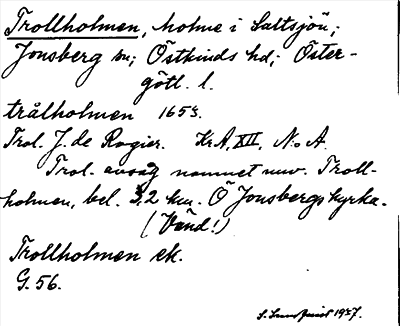 Trollholmen, holme i Saltsjön;
Jonsberg sn; Östkinds hd; Öster-
götl. l.
trålholmen 1653.
Trol. J. de Rogier. Kr.A, XII, N:o A.
Trol. avsåg namnet nuv. Troll-
holmen, bel. 3,2 km. Ö Jonsbergs kyrka.
(Vänd!)
Trollholmen ek.
G. 56.
1927.